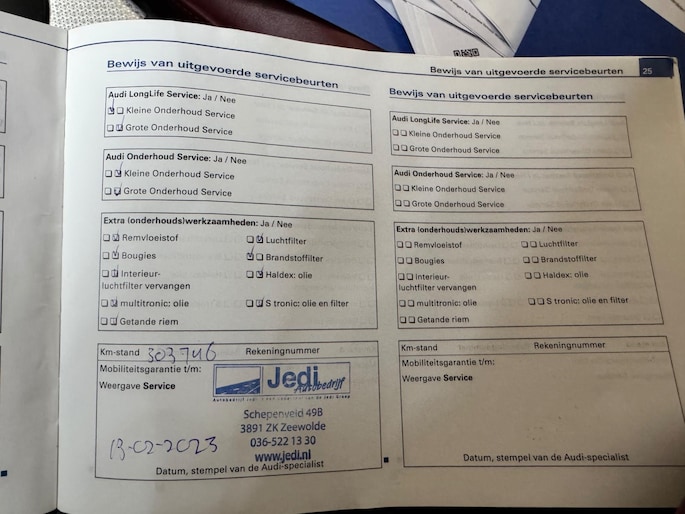 Bewijs van uitgevoerde servicebeurten
Audi LongLife Service: Ja / Nee
Kleine Onderhoud Service
Grote Onderhoud Service
Audi Onderhoud Service: Ja / Nee
Kleine Onderhoud Service
Grote Onderhoud Service
Extra (onderhouds)werkzaamheden: Ja / Nee
Remvloeistof
Luchtfilter
Bougies
Brandstoffilter
Interieur-
luchtfilter vervangen
Haldex: olie
multitronic: olie
S tronic: olie en filter
Getande riem
Km-stand 303746
Rekeningnummer
Mobiliteitsgarantie t/m:
Weergave Service
Jedi
Autobedrijf
Schepenveld 49B
3891 ZK Zeewolde
036-522 13 30
www.jedi.nl
19-02-2023
Datum, stempel van de Audi-specialist
Bewijs van uitgevoerde servicebeurten 25
Bewijs van uitgevoerde servicebeurten
Audi LongLife Service: Ja / Nee
Kleine Onderhoud Service
Grote Onderhoud Service
Audi Onderhoud Service: Ja / Nee
Kleine Onderhoud Service
Grote Onderhoud Service
Extra (onderhouds)werkzaamheden: Ja / Nee
Remvloeistof
Luchtfilter
Bougies
Brandstoffilter
Interieur-
luchtfilter vervangen
Haldex: olie
multitronic: olie
S tronic: olie en filter
Getande riem
Km-stand
Rekeningnummer
Mobiliteitsgarantie t/m:
Weergave Service
Datum, stempel van de Audi-specialist